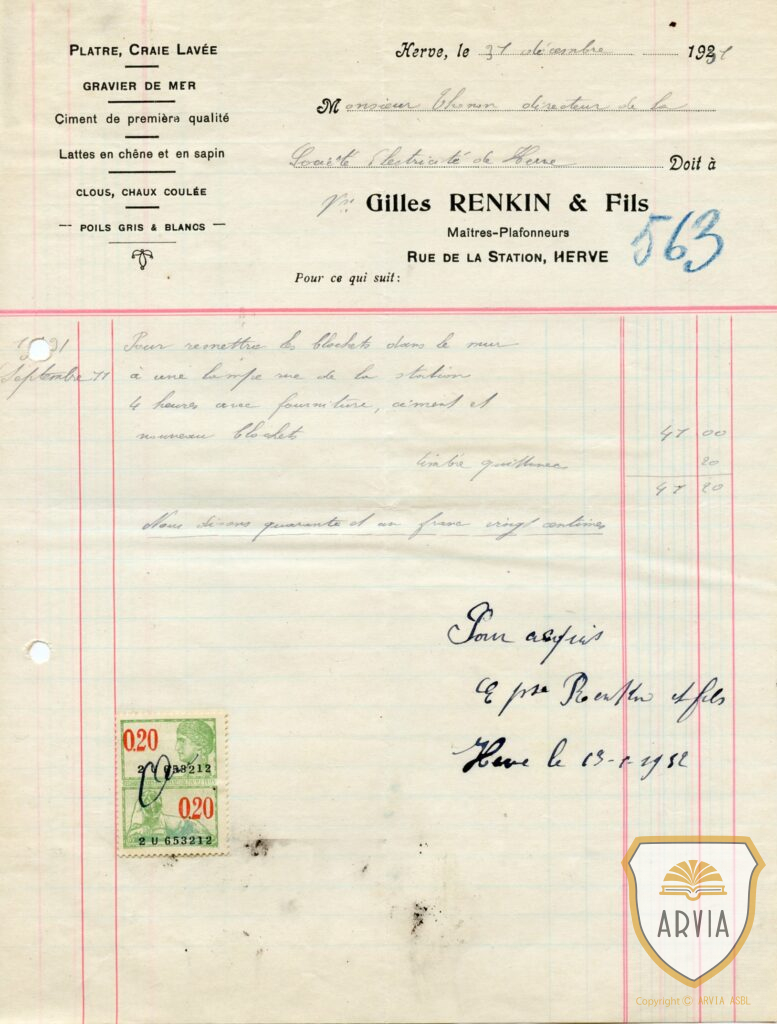 PLATRE, CRAIE LAVÉE
GRAVIER DE MER
Ciment de première qualité
Lattes en chêne et en sapin
CLOUS, CHAUX COULÉE
POILS GRIS & BLANCS
Herve, le 31 décembre 1931
Monsieur Thonon directeur de la
Société électricité de Herve Doit à
Gilles RENKIN & Fils
Maîtres-Plafonneurs
RUE DE LA STATION, HERVE
563
Pour ce qui suit:
1931 Pour remettre les blochets dans le mur
Septembre 11 à une lampe rue de la station
4 heures avec fourniture, ciment et
nouveau blochets 41 00
timbre quittance 20
41 20
Nous disons quarante et un franc vingt centimes
Pour acquis
Renkin et fils
Herve le 13-1-1932
0.20
2 U 653212
0.20
2 U 653212
ARVIA
Copyright © ARVIA ASBL